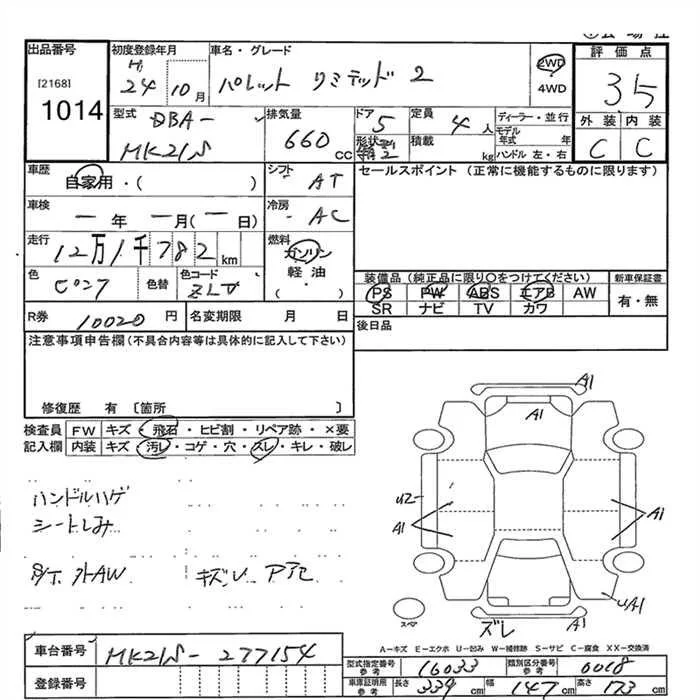 出品番号
[2168]
1014
初度登録年月
H
24 10月
車名・グレード
パレット リミテッド 2
2WD
4WD
評価点
3.5
外装 内装
C C
型式
DBA-
MK21S
排気量
660 cc
ドア
5
形状
定員
4人
積載
kg
ディーラー・並行
モデル
年式 年
ハンドル 左・右
車歴
自家用・( )
シフト
AT
セールスポイント (正常に機能するものに限ります)
車検
ー年 ー月(ー日)
冷房
AC
走行
12万1千782 km
燃料
ガソリン
軽油
( ・ )
色
ピンク
色替
色コード
ZLV
装備品 (純正品に限り○をつけてください)
PS PW ABS エアB AW
SR ナビ TV カワ
新車保証書
有・無
R券
10020 円
名変期限 月 日
後日品
注意事項申告欄(不具合内容等は具体的に記入して下さい)
修復歴 有 〔箇所 〕
検査員 FW キズ・飛石・ヒビ割・リペア跡・×要
記入欄 内装 キズ・汚レ・コゲ・穴・スレ・キレ・破レ
ハンドルハゲ
シートしみ
S/T 外AW キズレ
A1
A1
U2
A1
A1
U/A1
スペ
ズレ
A1
A-キズ E-エクボ U-凹み W-補修跡 S-サビ C-腐食 XX-交換済
車台番号
MK21S-277154
登録番号
型式指定番号
参考
16033
類別区分番号
参考
0018
車庫証明用
参考
長さ 339 cm 幅 147 cm 高さ 173 cm